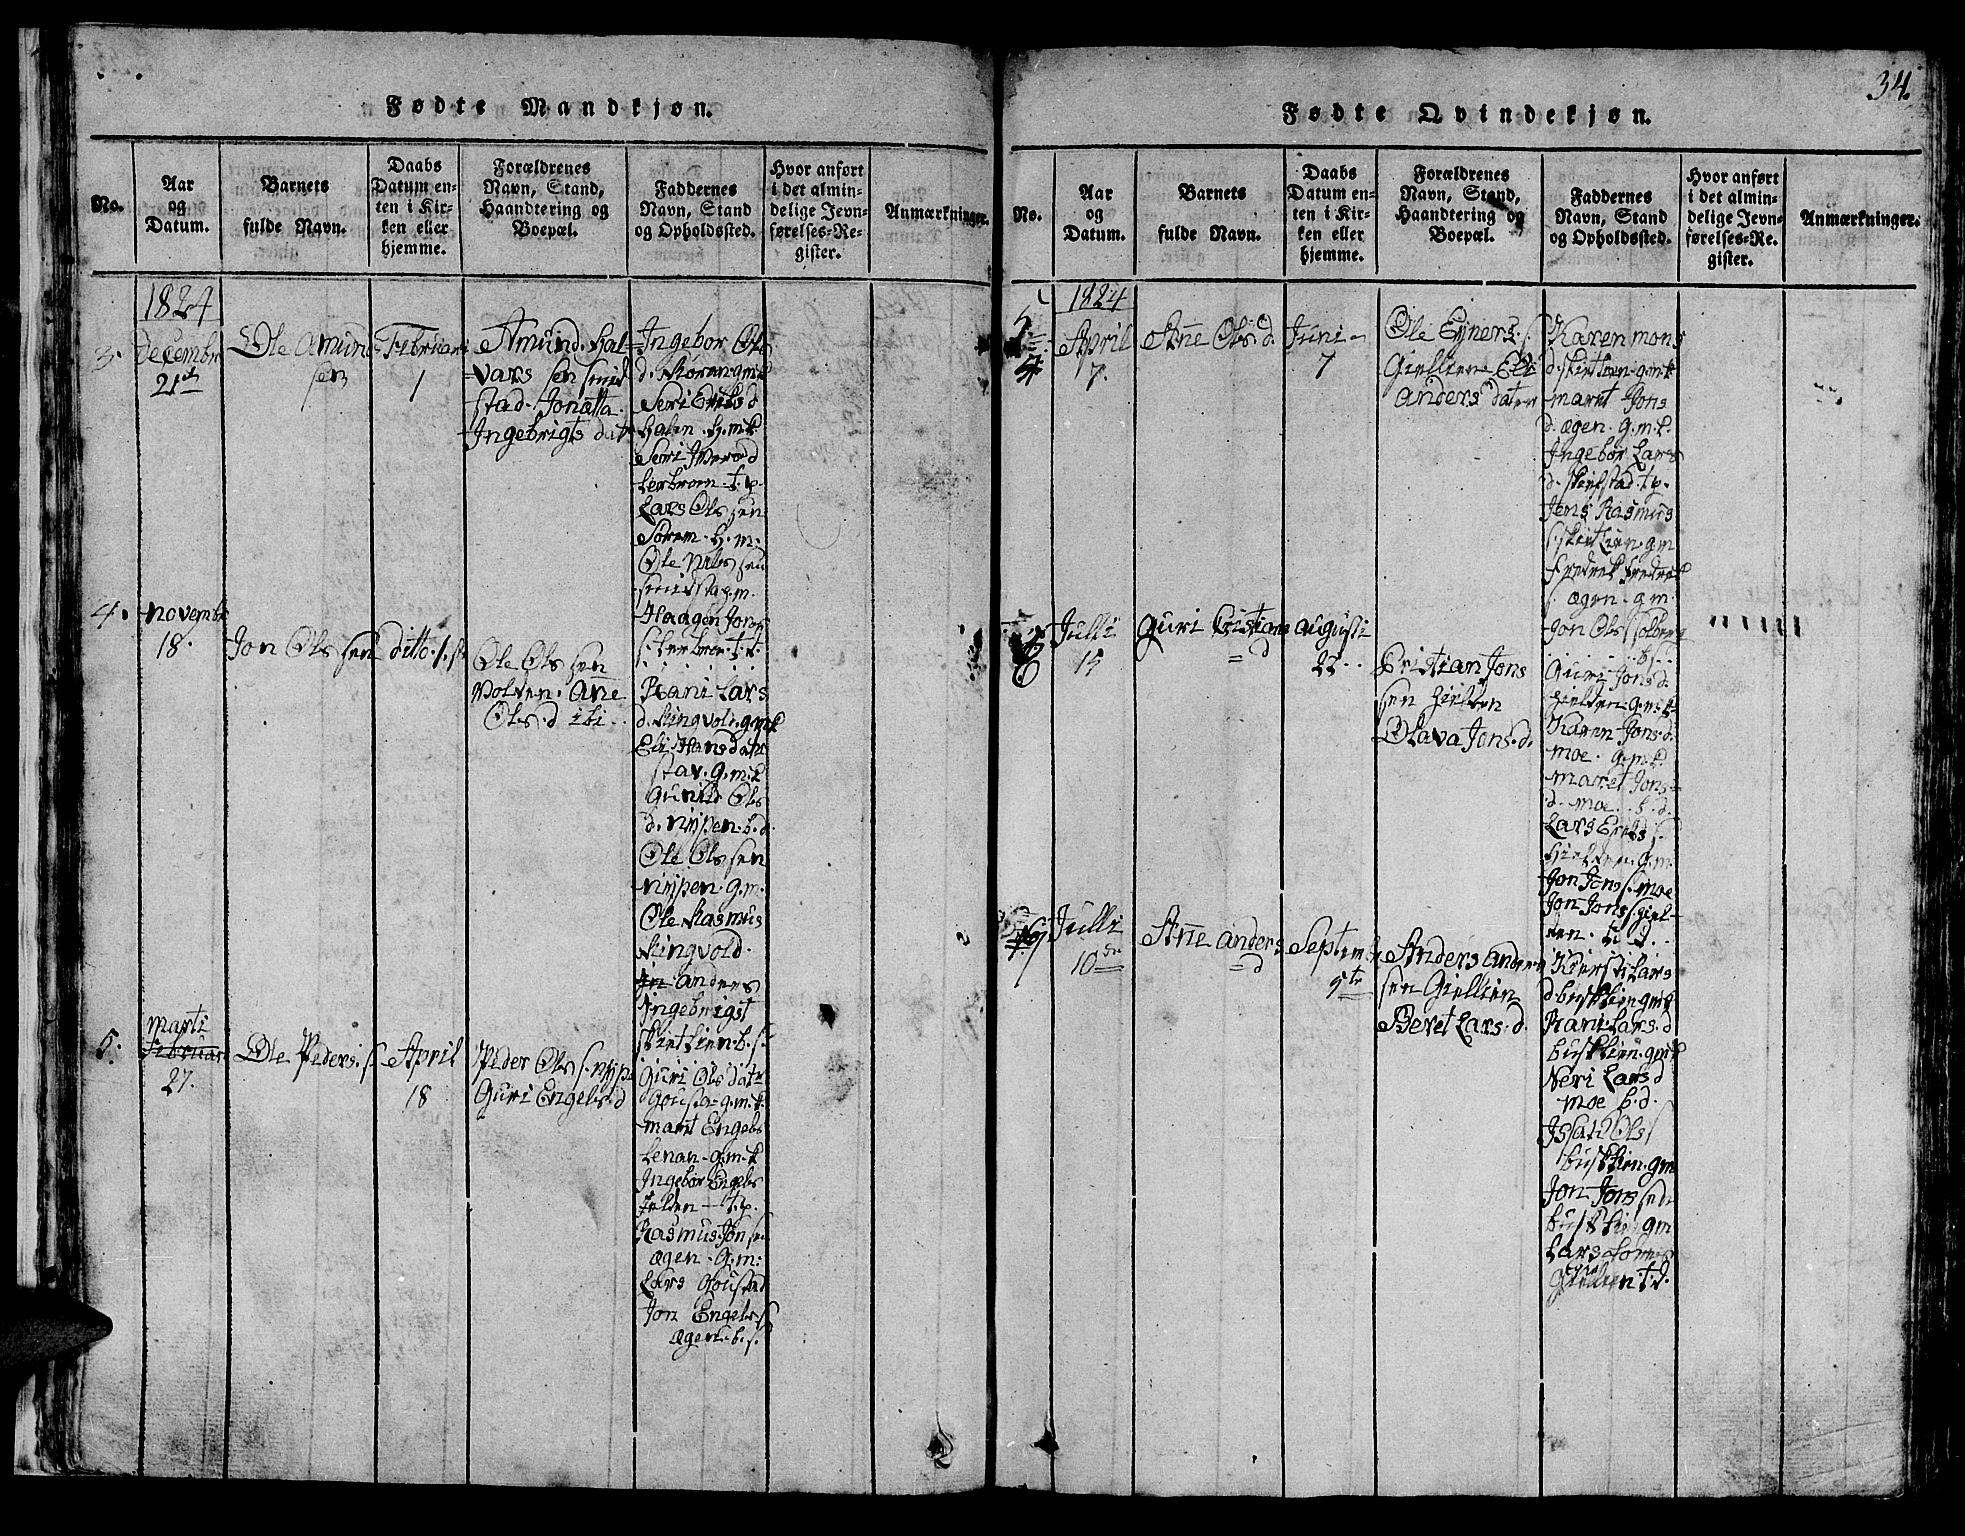 34.
Fødte Mandkjøn.
No.
Aar
og
Datum.
Barnets
fulde Navn.
Daabs
Datum en-
ten i Kir-
ken eller
hjemme.
Forældrenes
Navn, Stand,
Haandtering og
Boepæl.
Faddernes
Navn, Stand
og Opholdssted.
Hvor anført
i det almin-
delige Jevn-
førelses-Re-
gister.
Anmærkninger.
1824
3.
Decembr
21de
Ole Amund
sen
Februari
1
Amund Hal-
vars sen smid
stad. Jonetta
Ingebrigts datr
Ingebor Ols
d. Moran g.m.k
Seri Eribs d
Halen. H.m.k
Seri Iverso d
t.p.
Lars Ols sen
Sorem. H.m.
Ole Nils sen
g.m.
Haagen Jons
4.
Novembr
18.
Jon Ols sen
ditto. 1.
Ole Ols sen
Volden. Ane
Ols. d ibi
Rani Lars
d. Ringvold. g.m.k
Eli Hans datr
stav. g.m.k
Gunild Ols
d. Nypen. b.d.
Ole Ols sen
Nypen. g.m.
Ole Rasmus
Ringvold.
Anders
Ingebrigst
skietlien. b.s.
5.
Marti
Februari
27.
Ole Peders. s.
April
18
Peder Ols s. Nype
Guri Engels. d
Guri Ols datr
Gousta g.m.k.
Marit Engebs
Lenan. g.m.k
Ingebor Engebs
t.p.
Rasmus Jon sen
ægen. g.m.
Lars Goustad
Jon Engels. s
ægen. b.s.
Fødte Qvindekjøn.
No.
Aar
og
Datum.
Barnets
fulde Navn.
Daabs
Datum en-
ten i Kir-
ken eller
hjemme.
Forældrenes
Navn, Stand,
Haandtering og
Boepæl.
Faddernes
Navn, Stand
og Opholdssted.
Hvor anført
i det almin-
delige Jevn-
førelses-Re-
gister.
Anmærkninger.
1824
April
7.
Ane Ols. d.
Juni
7
Ole Eyners. s.
Giellien Eli
Anders dater
Karen Mons
d. skietlien. g.m.k
Maret Jons
d. ægen. g.m.k.
Ingebor Lars
d. skielstad. t.p.
Jens Rasmus
s. skietlien. g.m
Fredrek Fredrek
s. ægen. g.m.
Jon Ols Solberg
b.s.
Julli
15
Guri Cristians
d
Augusti
22
Cristian Jons
sen Hielten
Olava Jons. d.
Guri Jons d.
Hielten. g.m.k.
Karen Jons. d.
Moe. g.m.k.
Maret Jons
d. Moe. b.d.
Lars Eribs s.
Hielten. g.m.
Jon Jons s. Moe
Jon Jons s. Hiel-
ten.
Julli
10de
Ane Anders
d
Septemb
5te
Anders Anders
sen Giellien
Beret Lars. d.
Kiersti Lars
d. busklien g.m.k
Rani Lars. d
busklien. g.m.k
Neri Lars d
Moe b.d.
Ols s
busklien. g.m
Jon Jons sen
busklie g.m
Lars
Giellien. t.d.